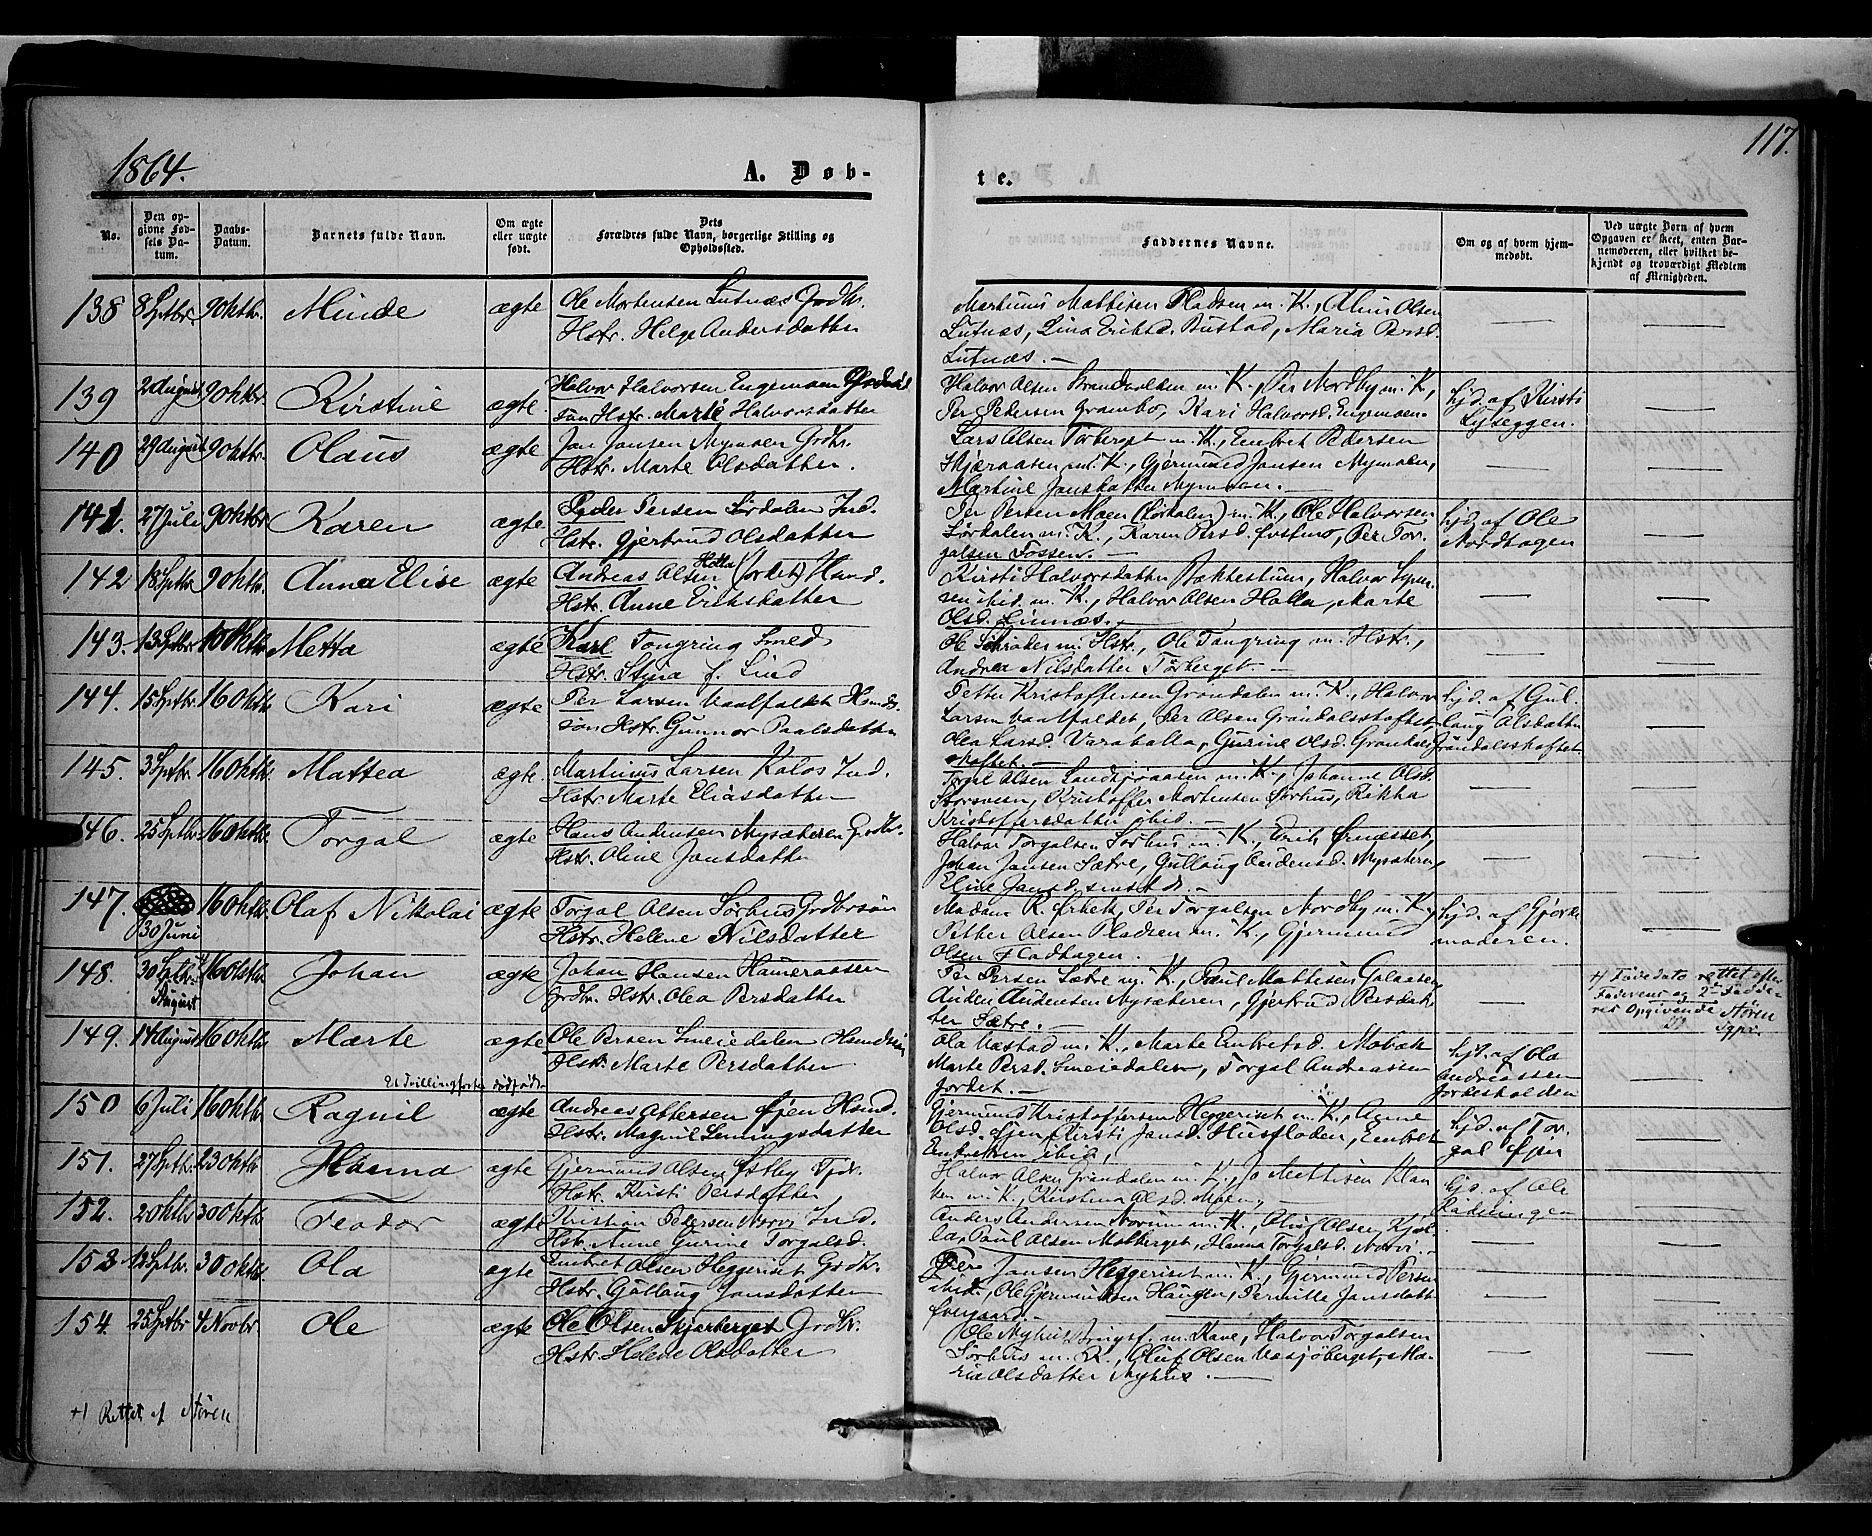 1864.
A. Døb-
te.
117.
No.
Den op-
givne Fød-
sels Da-
tum.
Daabs-
Datum.
Barnets fulde Navn.
Om ægte
eller uægte
født.
Dets
Forældres fulde Navn, borgerlige Stilling og
Opholdssted.
Faddernes Navne.
Om og af hvem hjem-
medøbt.
Ved uægte Børn af hvem
Opgaven er skeet, enten Bar-
nemoderen, eller hvilket be-
kjendt og troværdigt Medlem
af Menigheden.
138 8 Septbr. 9 Okthr. Minde ægte Ole Mortensen Lutnæs Gardbr.
Hstr. Helge Andersdatter
Martinus Mattisen Pladsen m. K., Olius Olsen
Lutnæs, Lina Eriksd. Bustad, Maria Persd.
Lutnæs. —
139 2 August 9 Okthr. Kirstine ægte Halvor Halvorsen Engemoen
søn Hstr. Marte Halvorsdatter
Halvor Olsen Brandvolden m. K., Per Nordby m. K,
Per Pedersen Grambo, Kari Halvorsd. Engemoen.
hjd. af Kirsti
Lyseggen.
140 29 August 9 Okthr. Olaus ægte Jan Jansen Nymoen Grdbr.
Hstr. Marte Olsdatter.
Lars Olsen Torberget m. K., Embret Pedersen
Skjæraasen m. K., Gjermund Jansen Nymoen,
Martine Jansdatter Nymoen. —
141. 27 Juli 9 Okthr Karen ægte Peder Persen Sørdalen Ind.
Hstr. Gjertrud Olsdatter
Per Persen Moen (Sørdalen) m. K., Ole Halvorsen
Sørdalen m. K., Karen Persd. Øvsmo, Per Tor-
galsen Fossen. —
hjd. af Ole
Nordhagen
142 18 Septbr. 9 Okthr. Anna Elise ægte Andreas Olsen Holla (Jordet) Hmd.
Hstr. Anne Eriksdatter
Kristi Halvorsdatter Bækkestuen, Halvor
ibid. m. K., Halvor Olsen Holla, Marte
Olsd. Linnæs. —
143. 13 Septbr 10 Okthr. Metta ægte Karl Tongring Smed
Hstr. Stina f. Lind
Ole Schrøder m. Hstr., Ole Tangring m. Hstr.,
Andrea Nilsdatter Torberget —
144. 15 Septbr. 16 Okthr. Kari ægte Per Larsen Vaatfaldet Hmds.
søn Hstr. Gunnor Paalsdatter
Petter Kristoffersen Grøndalen m. K., Halvor
Larsen Vaatfaldet, Per Olsen Grøndalsskaftet,
Olea Larsd. Varaholla, Gurine Olsd. Grøndals-
skaftet. —
hjd. af Gul-
laug Olsdatter
Grøndalsskaftet
145. 3 Septbr. 16 Okthr. Mattea ægte. Martinus Larsen Kolos Ind.
Hstr. Marte Eliasdatter
Torgal Olsen Landsjøaasen m. K., Johanne Olsd.
Storsveen, Kristoffer Mortensen Sørhus, Rikka
Kristoffersdatter ibid. —
146. 25 Septbr. 16 Okthr. Torgal ægte Hans Andersen Mysæteren Grdbr.
Hstr. Oline Jansdatter
Halvor Torgalsen Sørhus m. K., Erik Ørnesset,
Johan Jansen Sætre, Gullaug Audensd. Mysæteren,
Eline Jansd. —
147. 30 Juni 16 Okthr Olaf Nikolai ægte Torgal Olsen Sørhus Grdbrsøn
Hstr. Helene Nilsdatter
Madam R. Ørbek, Per Torgalsen Nordby m. K.,
Petter Olsen Pladsen m. K., Gjermund
Olsen Fladhagen.
hjd. af Gjorde-
moderen.
148. 30 Septbr. August 16 Okthr. Johan ægte Johan Hansen Hameraasen
Grdbr. Hstr. Olea Persdatter
Per Persen Sætre m. K., Paul Mattisen Galaasen
Auden Audensen Mysæteren, Gjertrud Persdat-
ter Sætre. —
+) Fødedato rettet efter
Faderens og 2de Fadde-
res Opgivende Støren
Sgpr.
149. 14 August 16 Okthr. Marte ægte Ole Persen Smeiedalen Hmdssøn
Hstr. Marte Persdatter
Ola Næstad m. K., Marte Embretsd. Mobæk
Marte Persd. Smeiedalen, Torgal Andreassen
Jordet. —
hjd. af Ola
Andreassen
Jordetsholden
Et Tvillingfoster dødfødt
150 6 Juli 16 Okthr Ragnil ægte Andreas Ottersen Øjen Hsmd.
Hstr. Magnil Lenningsdatter
Gjermund Kristoffersen Heggeriset m. K., Agne
Olsd. Øjen, Kirsti Jansd. Husfloden, Embret
Embretsen ibid.
hjd. af Tor-
gal Øjen
151. 27 Septbr. 23 Okthr Hanna ægte Gjermund Olsen Østby
Hstr. Kirsti Persdatter
Halvor Olsen Grøndalen m. K., Jo Mattisen Klan-
ken m. K., Kristina Olsd. Moen, —
hjd. af Ole
Rødningen
152. 2 Okthr 30 Okthr. Teodor ægte Kristian Pedersen Norvi Ind.
Hstr. Anne Gurine Torgalsd.
Anders Andersen Norum m. K., Oluf Olsen Kjøl-
la, Paul Olsen Moberget, Hanna Torgalsd. Norvi. —
153 13 Septbr. 30 Okthr Ola ægte Embret Olsen Heggeriset Grdbr.
Hstr. Gullaug Jansdatter
Per Jansen Heggeriset m. K., Gjermund Persen
ibid., Ole Gjermundsen Haugen, Pernille Jansdatter
Øvergaard. —
154. 25 Septbr 4 Novbr. Ole ægte Ole Olsen Skjærberget Grdbr.
Hstr. Helene Olsdatter
Ole Myhus Ungkf. m. Kone, Halvor Torgalsen
Sørhus m. K., Oluf Olsen Vasjøberget, Ma-
ria Olsdatter Myhus. —
+) Rettet af Støren